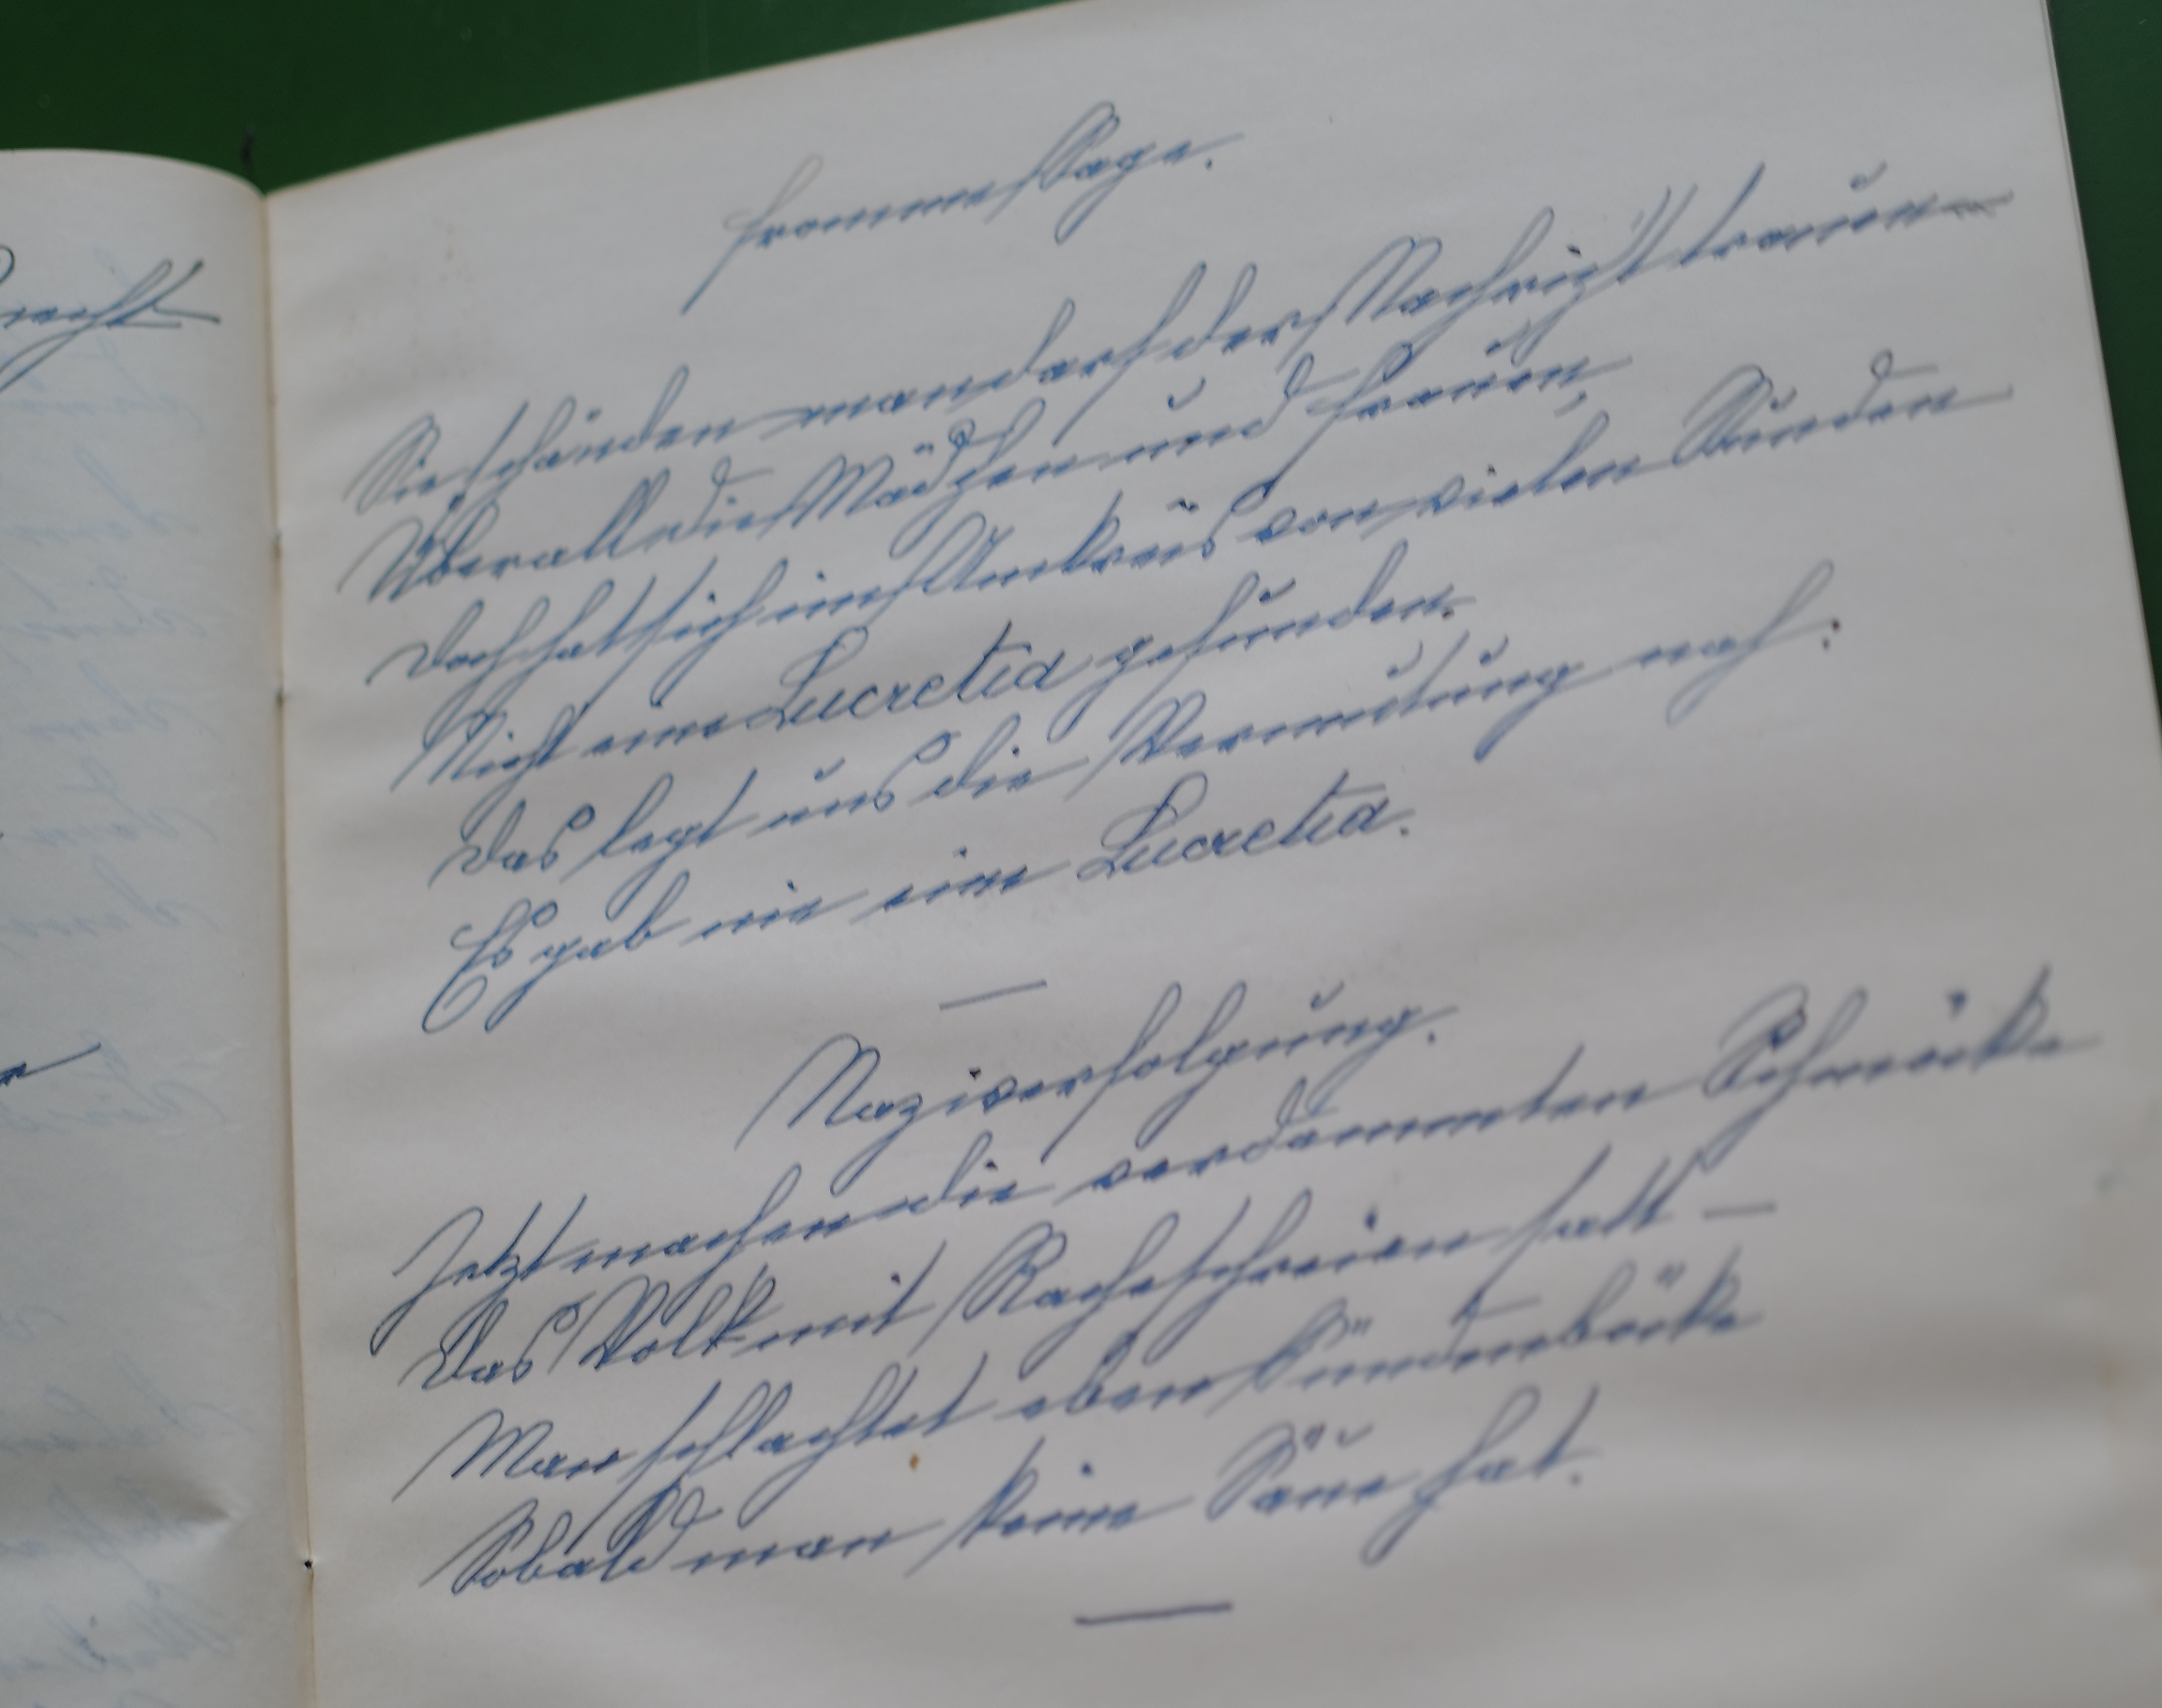 fromme Sage.
Sie schänden man darf der Nachricht trauen
Überall die Mädchen und Frauen,
Doch hat sich im Umkreis von vielen Stunden
Nicht eine Lucretia gefunden.
Das legt uns die Vermutung nah:
Es gab nie eine Lucretia.
—
Naziverfolgung.
Jetzt machen die verdammten Schmöcke
Das Volk mit Racheschreien satt —
Man schlachtet eben Sündenböcke
Sobald man keine Säue hat.
—